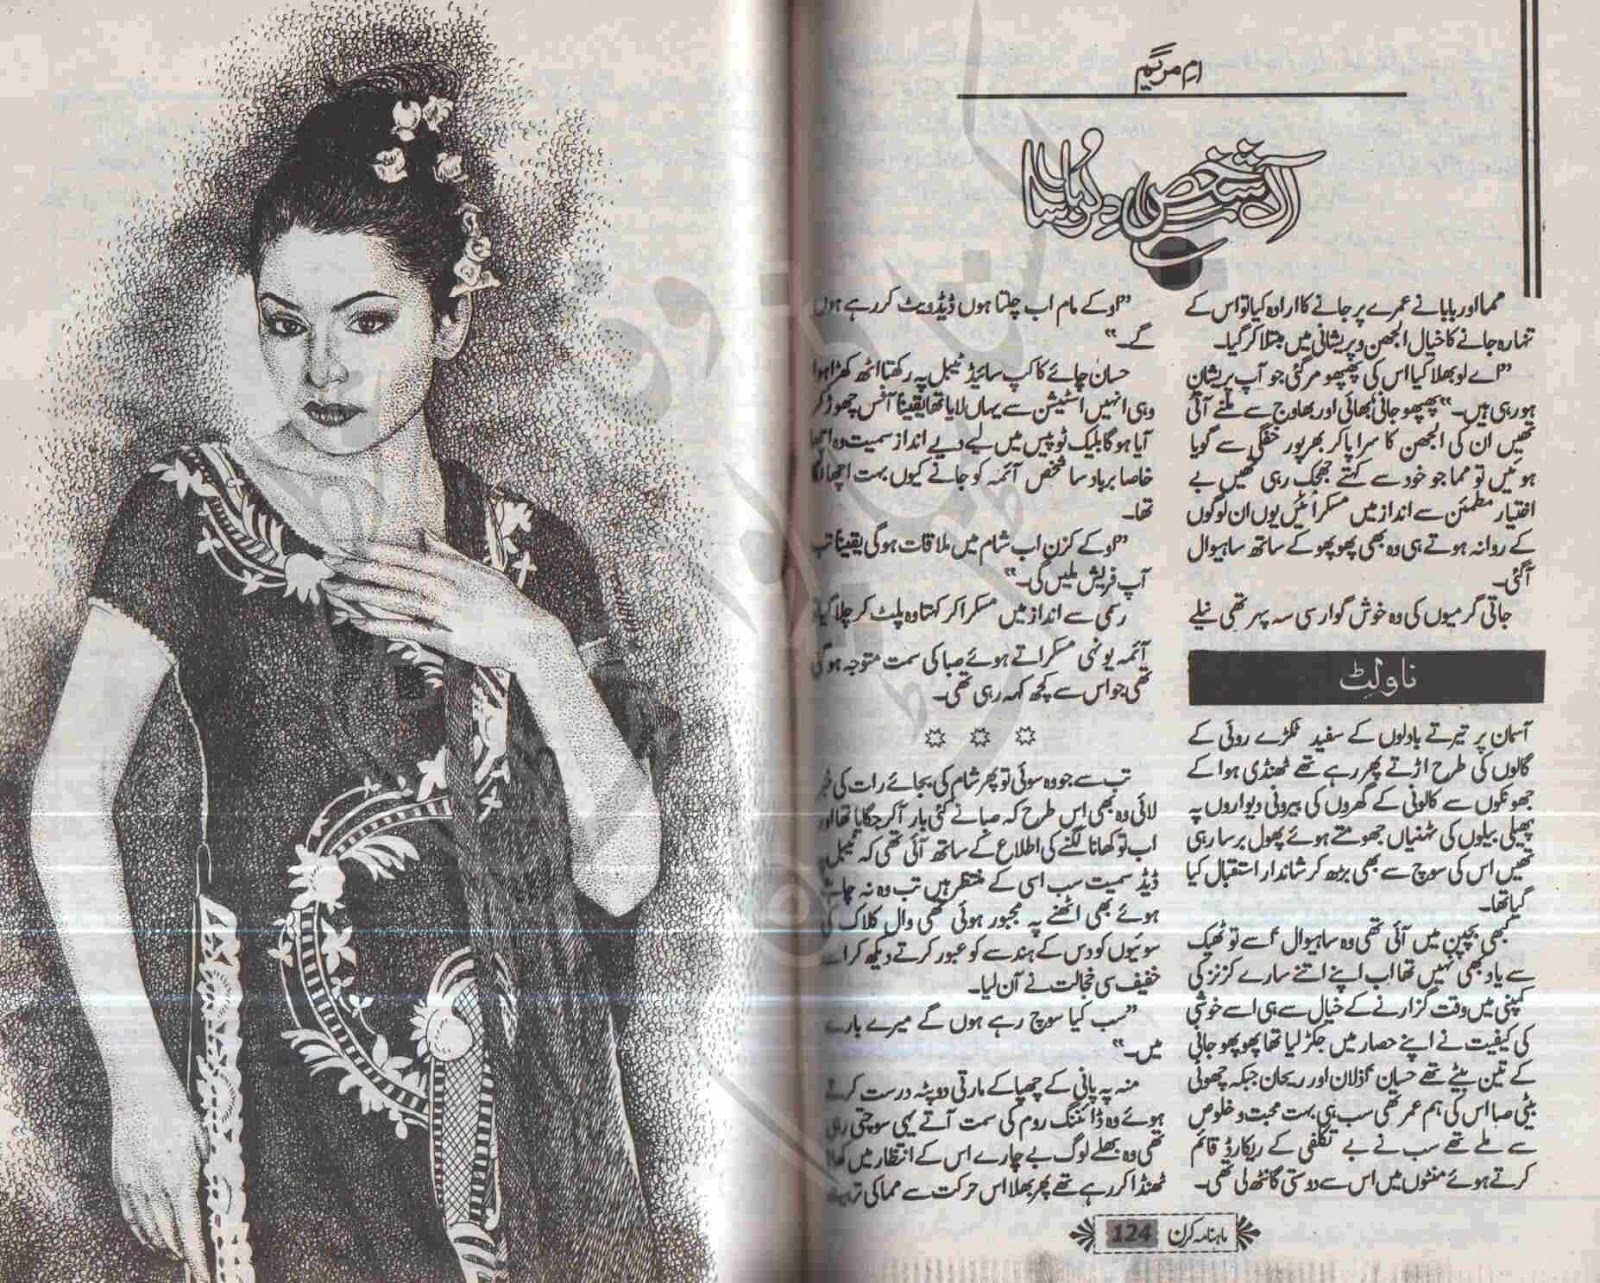 ام مریم
مما اور بابا نے عمرے پر جانے کا ارادہ کیا تو اس کے
تنہا رہ جانے کا خیال الجھن و پریشانی میں مبتلا کر گیا۔
”اے لو بھلا کیا اس کی پھپھو مر گئی جو آپ پریشان
ہو رہی ہیں۔“ پھپھو جانی بھائی اور بھاوج سے ملنے آئی
تھیں ان کی الجھن کا سرا پا کر بھرپور خفگی سے گویا
ہوئیں تو مما جو خود سے کہتے جھجک رہی تھیں بے
اختیار مطمئن سے انداز میں مسکرائیں یوں ان لوگوں
کے روانہ ہوتے ہی وہ بھی پھوپھو کے ساتھ ساہیوال
آگئی۔
جاتی گرمیوں کی وہ خوش گوار سی سہ پہر تھی نیلے
ناولٹ
آسمان پر تیرتے بادلوں کے سفید ٹکڑے روئی کے
گالوں کی طرح اڑتے پھر رہے تھے ٹھنڈی ہوا کے
جھونکوں سے کالونی کے گھروں کی بیرونی دیواروں پہ
پھیلی بیلوں کی ٹہنیاں جھومتے ہوئے پھول برسا رہی
تھیں اس کی سوچ سے بھی بڑھ کر شاندار استقبال کیا
گیا تھا۔
کبھی بچپن میں آئی تھی وہ ساہیوال اسے تو ٹھیک
سے یاد بھی نہیں تھا اب اپنے اتنے سارے کزنز کی
کمپنی میں وقت گزارنے کے خیال سے ہی اسے خوشی
کی کیفیت نے اپنے حصار میں جکڑ لیا تھا پھوپھو جانی
کے تین بیٹے تھے حسان اذلان اور ریحان جبکہ چھوٹی
بیٹی صبا اس کی ہم عمر تھی سب ہی بہت محبت و خلوص
سے ملے تھے سب نے بے تکلفی کے ریکارڈ قائم
کرتے ہوئے منٹوں میں اس سے دوستی گانٹھ لی تھی۔
”اوکے مام اب چلتا ہوں ڈیڈ ویٹ کر رہے ہوں
گے۔“
حسان چائے کا کپ سائیڈ ٹیبل پہ رکھتا اٹھ کھڑا ہوا
وہی انہیں اسٹیشن سے یہاں لایا تھا یقیناً آفس چھوڑ کر
آیا ہو گا بلیک ٹو پیس میں لیے دیے انداز سمیت وہ اچھا
خاصا بردبار سا شخص آئمہ کو جانے کیوں بہت اچھا لگا
تھا۔
”اوکے کزن اب شام میں ملاقات ہو گی یقیناً تب
آپ فریش ملیں گی۔“
رسمی سے انداز میں مسکرا کر کہتا وہ پلٹ کر چلا گیا تو
آئمہ یونہی مسکراتے ہوئے صبا کی سمت متوجہ ہو گئی
تھی جو اس سے کچھ کہہ رہی تھی۔
تب سے جو وہ سوئی تو پھر شام کی بجائے رات کی خبر
لائی وہ بھی اس طرح کہ صبا نے کئی بار آ کر جگایا تھا اور
اب تو کھانا لگنے کی اطلاع کے ساتھ آئی تھی کہ ٹیبل پہ
ڈیڈ سمیت سب اسی کے منتظر ہیں تب وہ نہ چاہتے
ہوئے بھی اٹھنے پہ مجبور ہوئی تھی وال کلاک کی
سوئیوں کو دس کے ہندسے کو عبور کرتے دیکھ کر اسے
خفیف سی خجالت نے آن لیا۔
”سب کیا سوچ رہے ہوں گے میرے بارے
میں۔“
منہ پہ پانی کے چھپاکے مارتی دوپٹہ درست کرتے
ہوئے وہ ڈائننگ روم کی سمت آتے یہی سوچتی رہی
تھی وہ بھلے لوگ بے چارے اس کے انتظار میں کھانا
ٹھنڈا کر رہے تھے پھر بھلا اس حرکت سے مما کی تربیت
ماہنامہ کرن 124